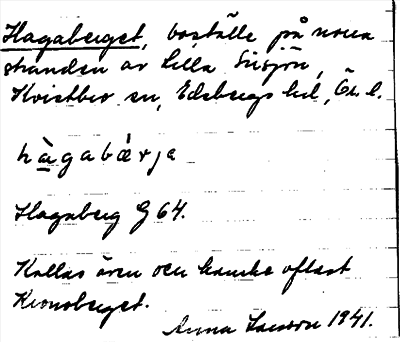 Hagaberget, boställe på norra
stranden av Lilla Susjön,
Kvistbro sn, Edsbergs hd, Ör. l.
hàgabárja
Hagaberg G 64.
Kallas även och kanske oftast
Kronoberget.
Anna Larsson 1941.